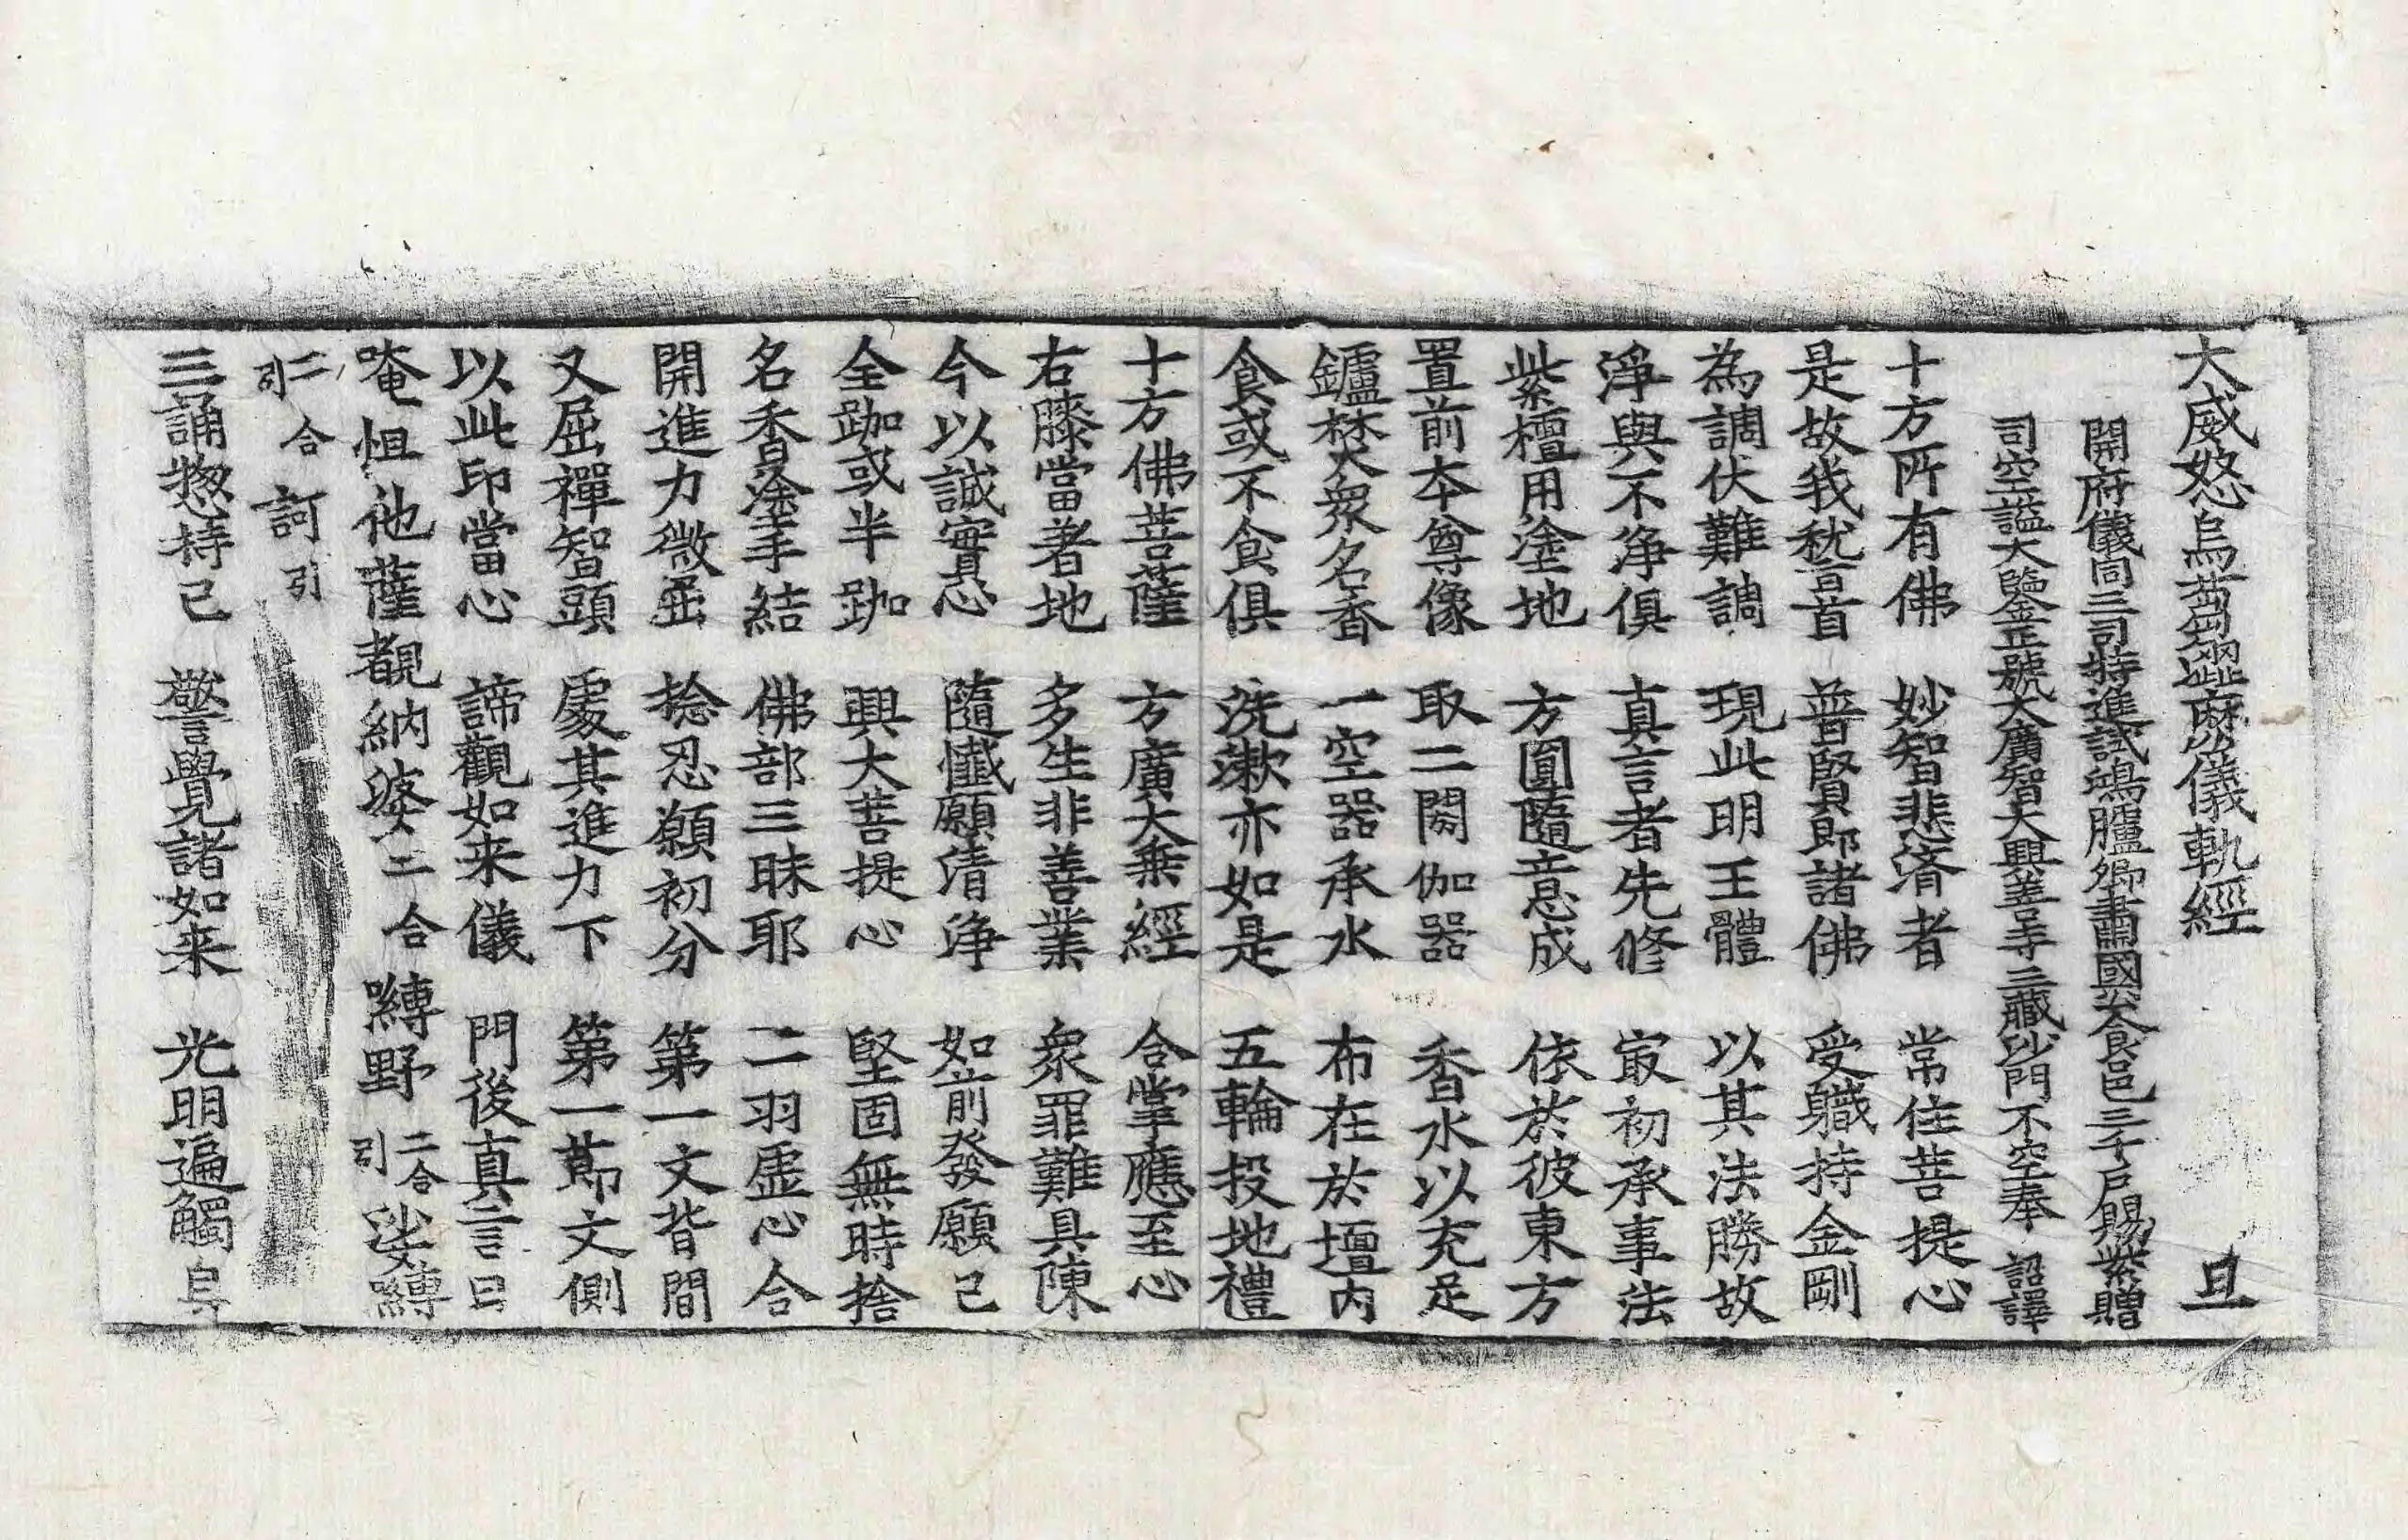 大威怒烏蒭澁麽儀軌經 旦
開府儀同三司特進試鴻臚卿肅國公食邑三千戶賜紫贈
司空謚大鑒正號大廣智大興善寺三藏沙門不空奉 詔譯
十方所有佛 妙智悲濟者 常住菩提心
是故我稽首 普賢即諸佛 受職持金剛
為調伏難調 現此明王體 以其法勝故
淨與不淨俱 真言者先修 冣初承事法
紫檀用塗地 方圓隨意成 依於彼東方
置前本尊像 取二閼伽器 香水以充足
鑪焚众名香 一空器承水 布在於壇內
食或不食俱 洗漱亦如是 五輪投地禮
十方佛菩薩 方廣大乘經 合掌應至心
右膝當著地 多生非善業 衆罪難具陳
今以誠實心 隨懺願清淨 如前發願已
全跏或半跏 興大菩提心 堅固無時捨
名香塗手結 佛部三昧耶 二羽虛心合
開進力微屈 捻忍願初分 第一文背間
又屈禪智頭 處其進力下 第一莭文側
以此印當心 諦觀如来儀 門後真言曰
唵怛他蘖覩納婆二合嚩野二合引娑嚩
二合引訶引
三誦惣持已 警覺諸如来 光明遍觸身